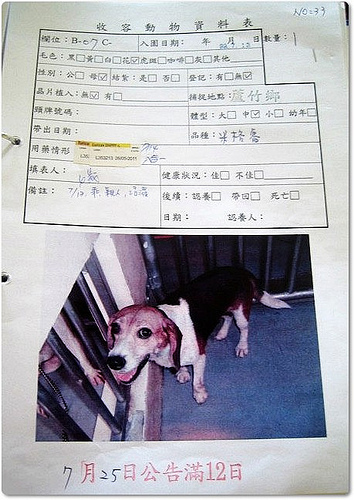 NO:33
收容動物資料表
欄位：B-07C- 入園日期： 年 月 日 數量：1
毛色：黑□黃□白□花☑虎斑□咖啡□灰□其他
性別：公□母☑ 結紮：是□否□ 登記：有□無☑
晶片植入：無☑有□ 捕捉地點：蘆竹鄉
頸牌號碼： 體型：大□中☑小□幼年□
帶出日期： 品種：米格魯
用藥情形
填表人： 健康狀況：佳□不佳□
備註：7/12 後續：認養□帶回□死亡□
日期： 認養人：
7月25日公告滿12日